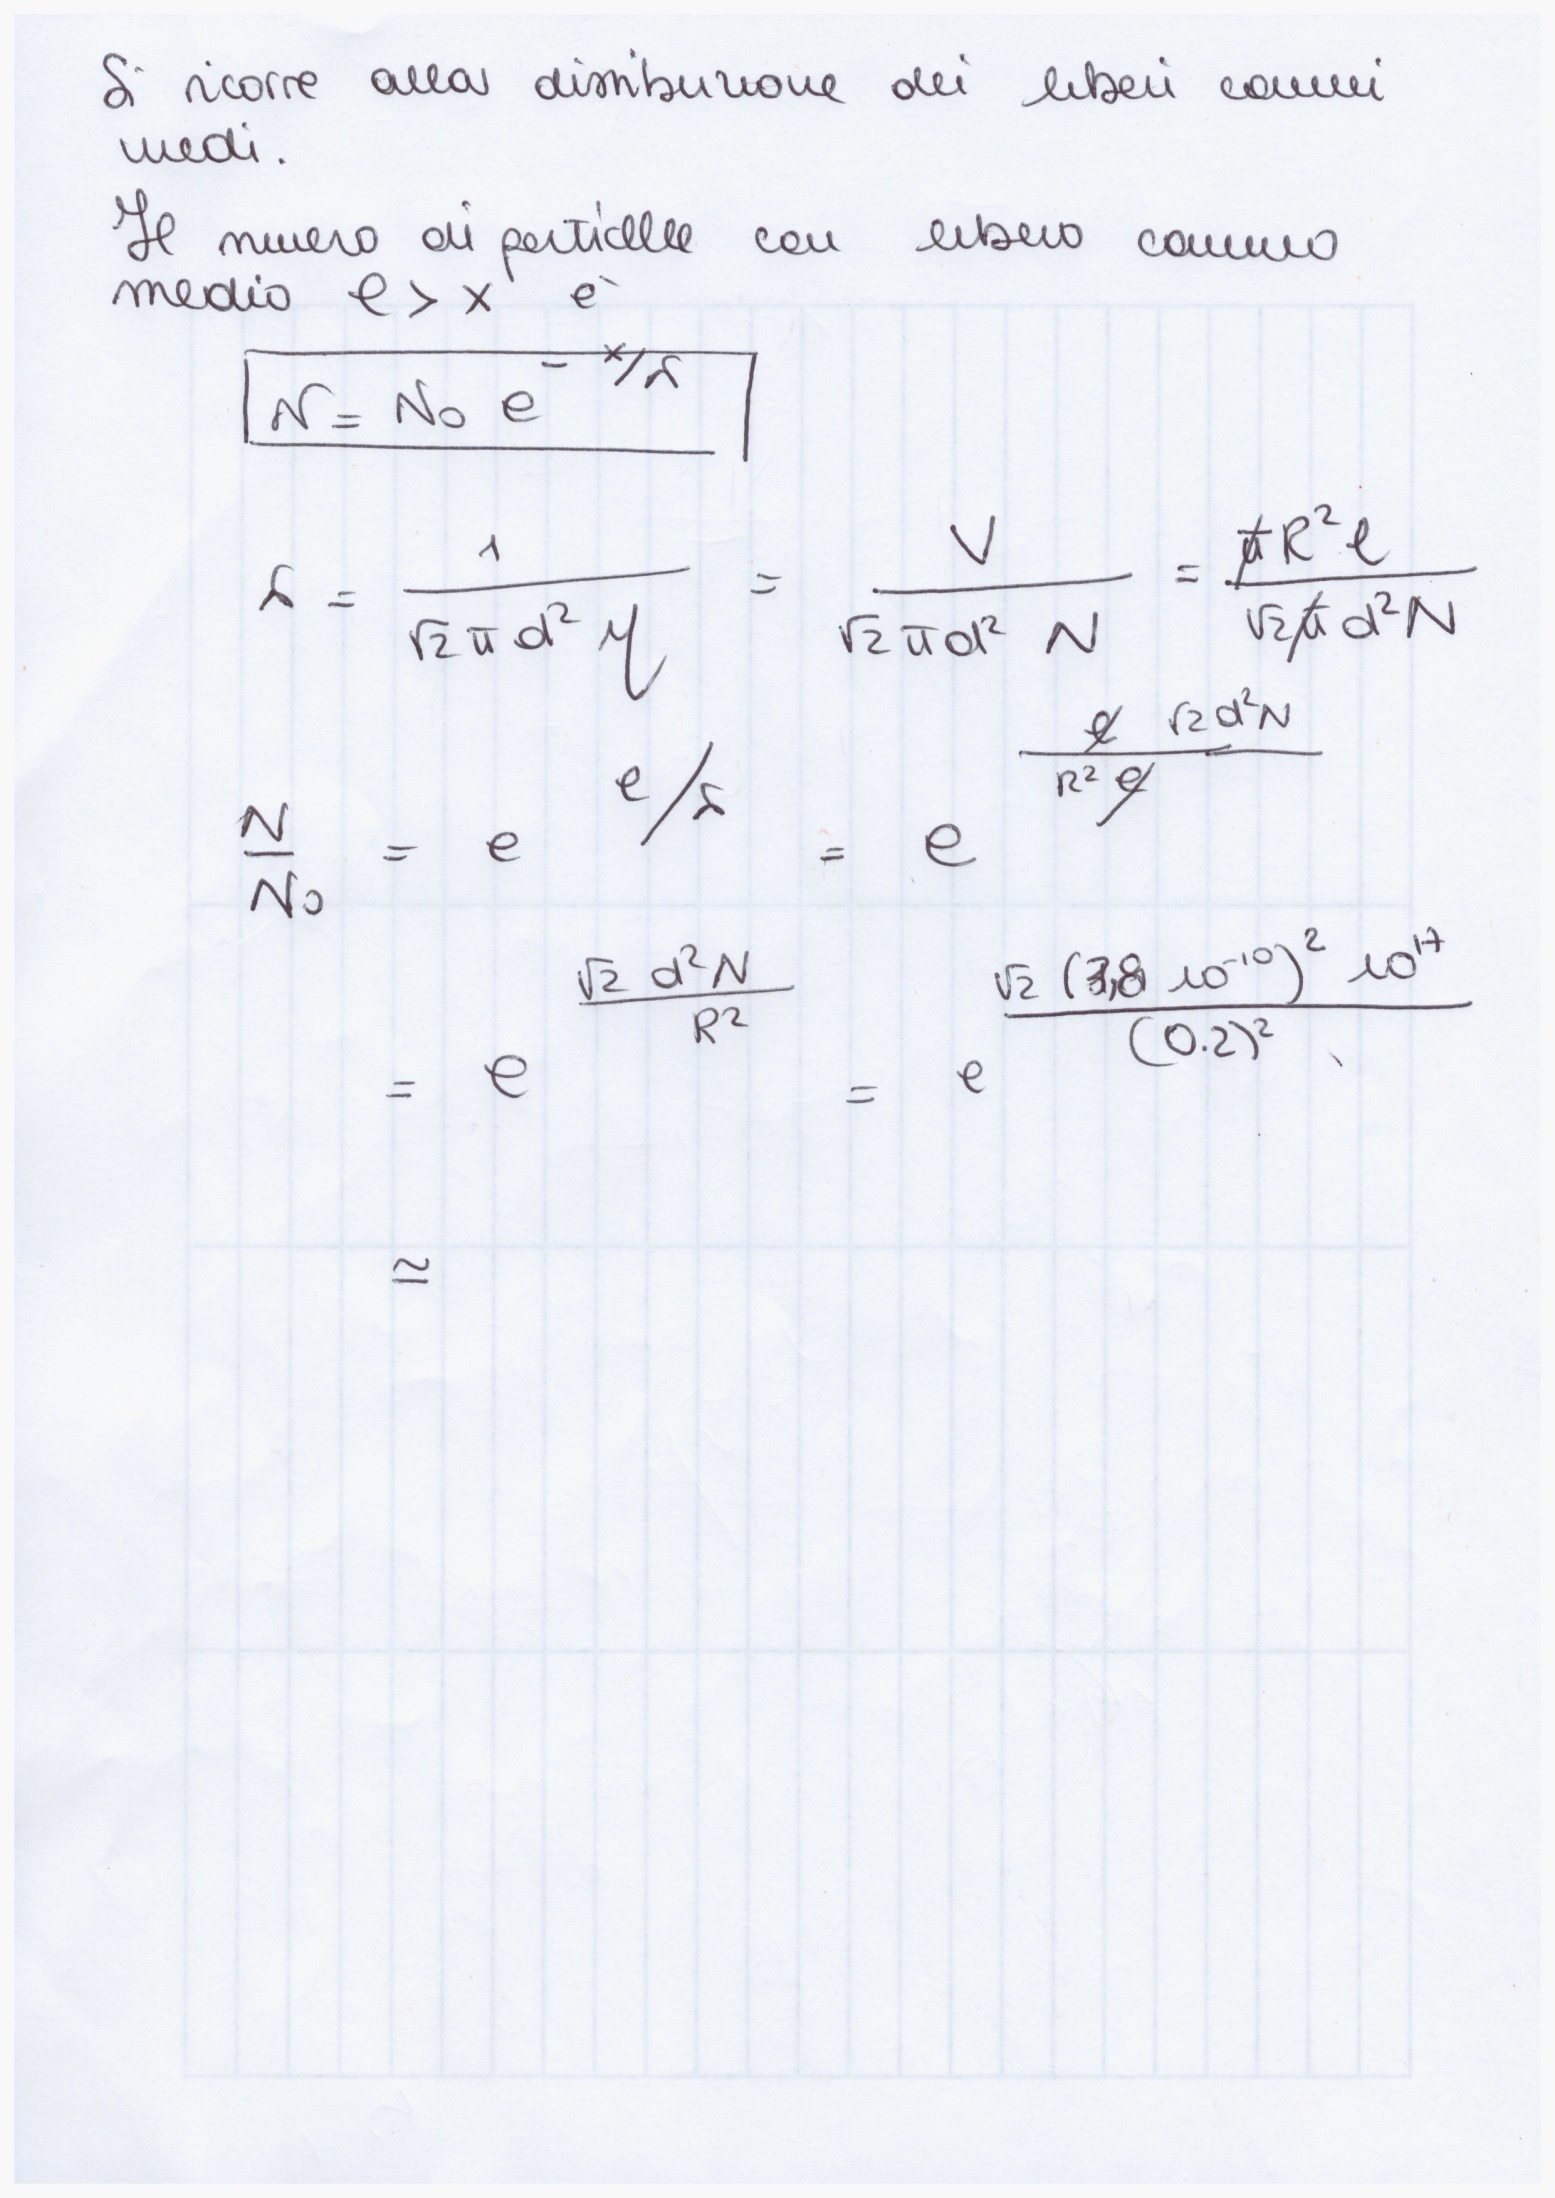 Si ricorre alla distribuzione dei liberi cammini
medi.
Il numero di particelle con libero cammino
medio l > x è
N = N₀ e^(- x/λ)
λ = 1 / (√2 π d² η) = V / (√2 π d² N) = π R² l / (√2 π d² N)
N/N₀ = e^(l/λ) = e^(l √2 d² N / (R² l))
= e^(√2 d² N / R²) = e^(√2 (3,8 10⁻¹⁰)² 10¹⁷ / (0.2)²)
≃